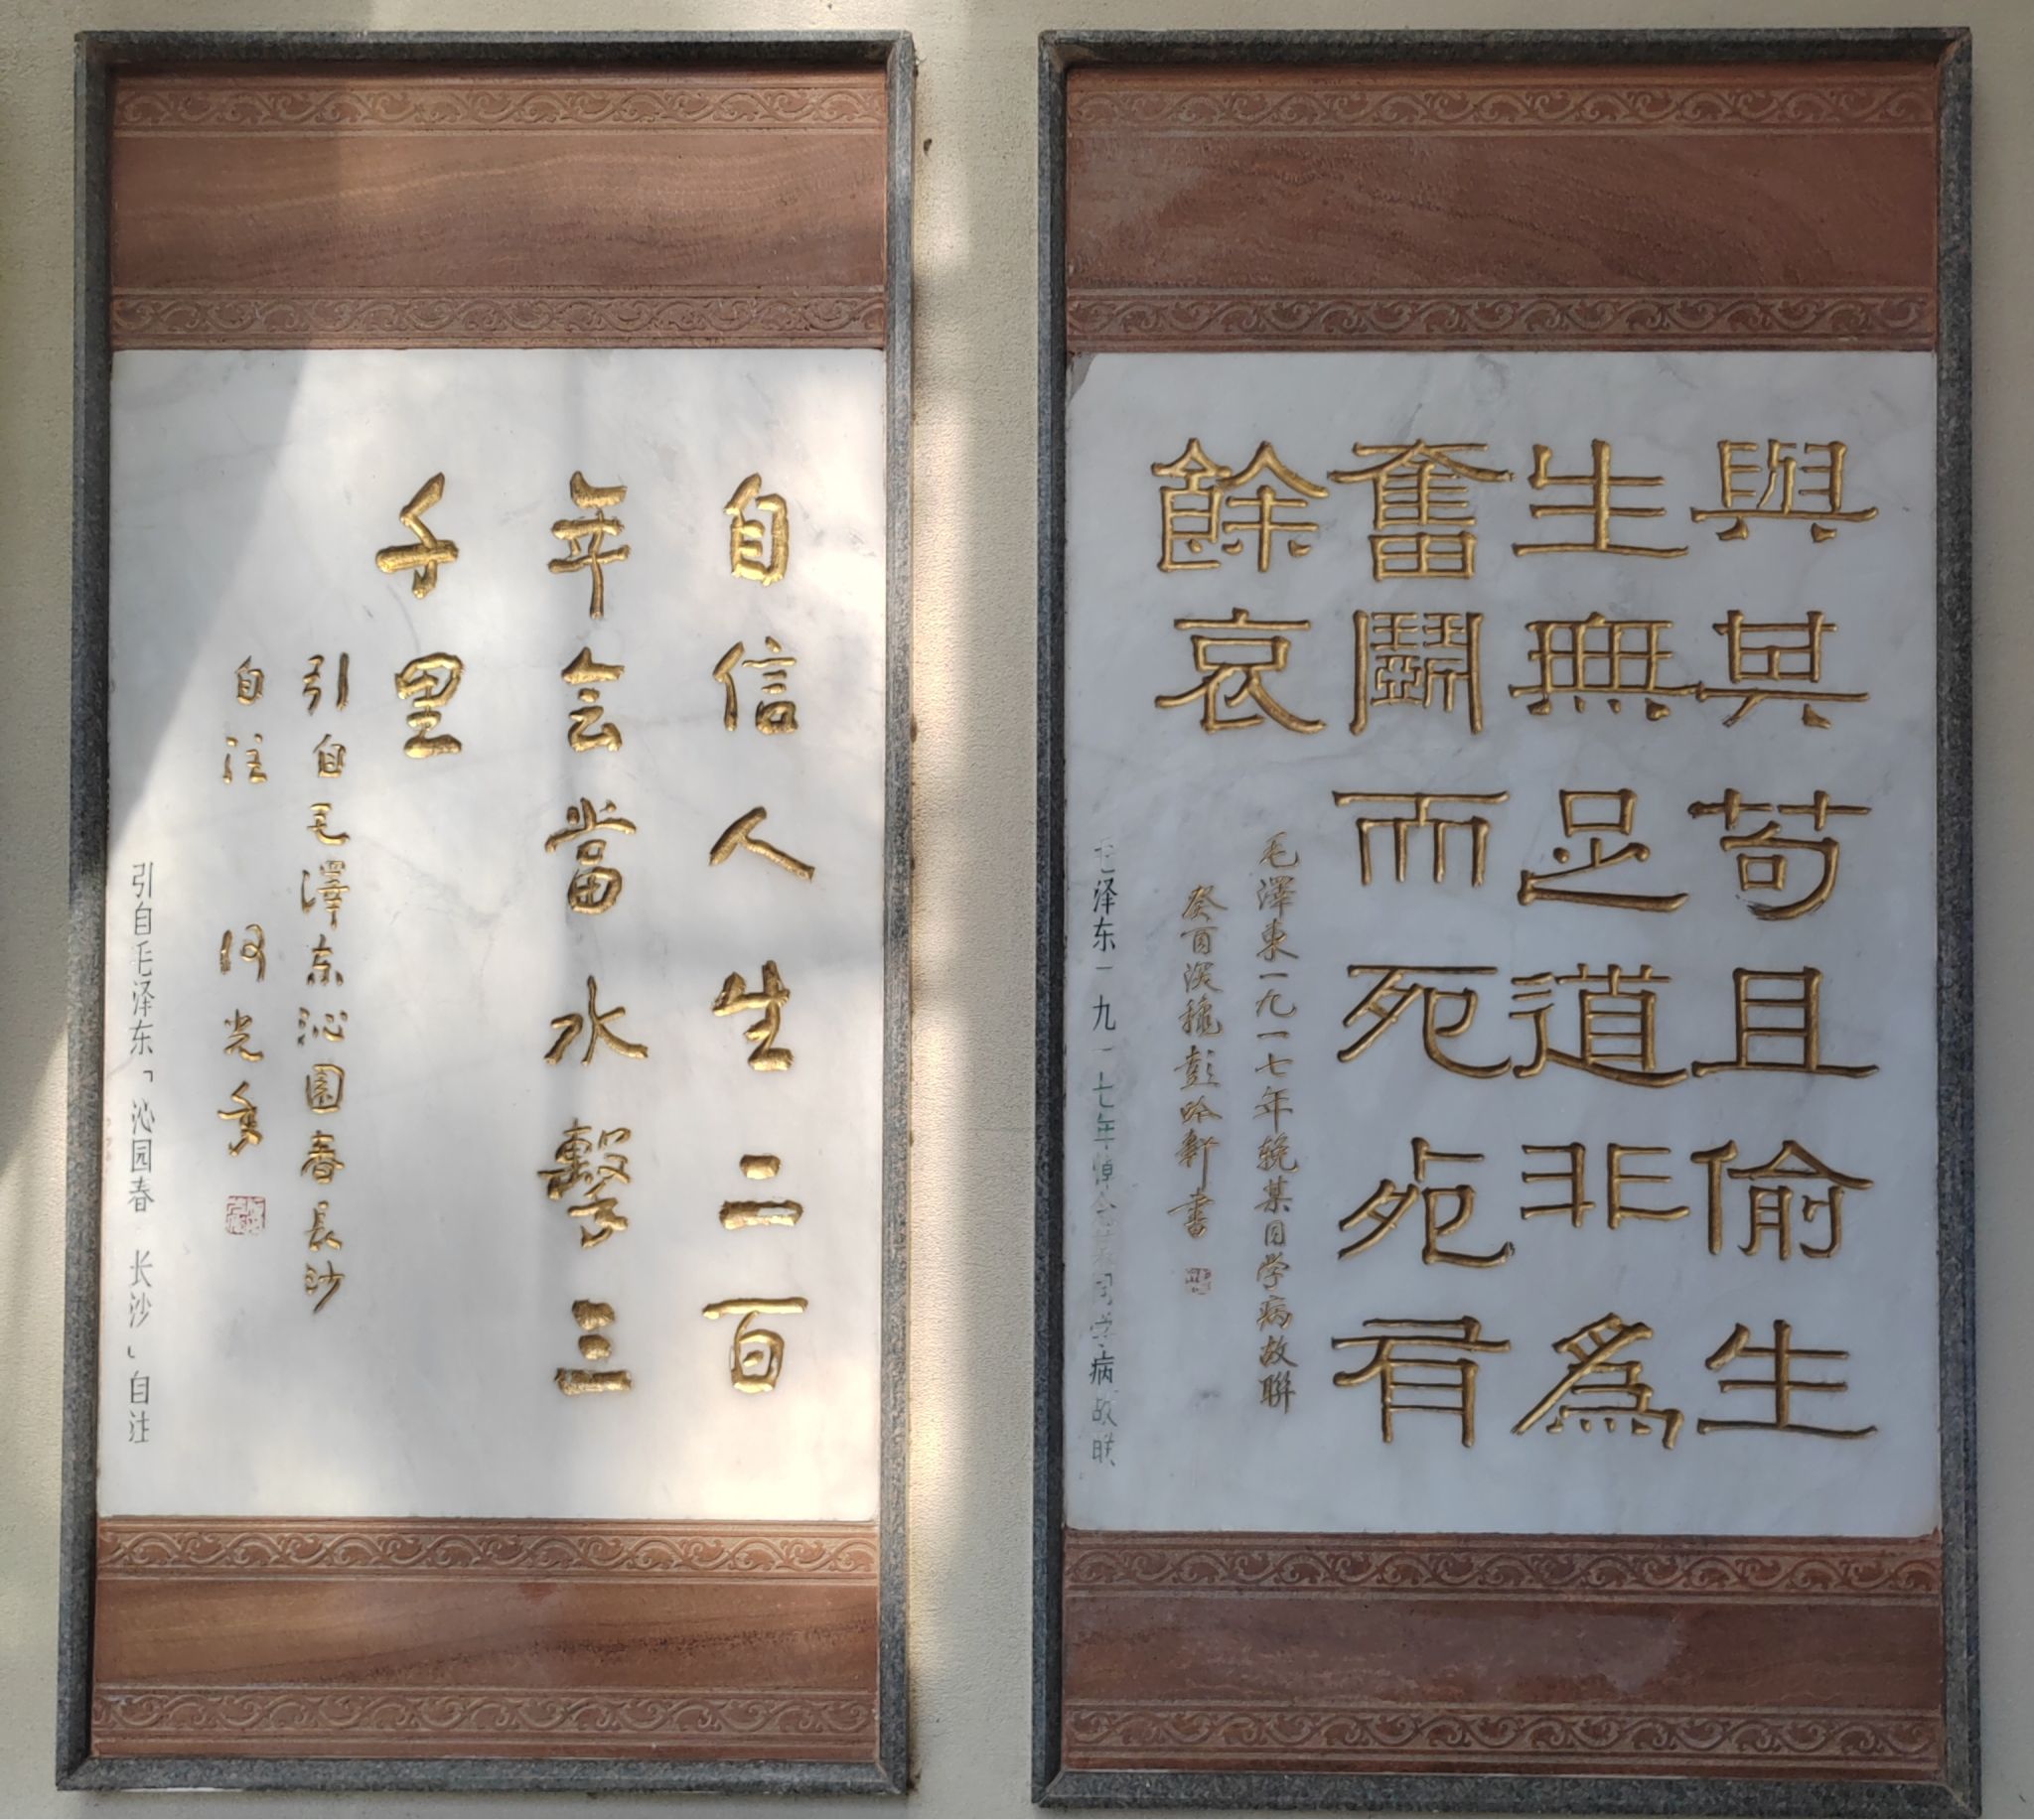 與其苟且偷生
生無足道非為
奮鬭而死死有
餘哀
毛澤東一九一七年挽某同学病故聯
癸酉深穐彭吟軒书
泽东一九一七年悼念某同学病故联
自信人生二百
年会當水擊三
千里
引自毛澤东沁園春長沙
自注
何光年
引自毛泽东「沁园春 长沙」自注